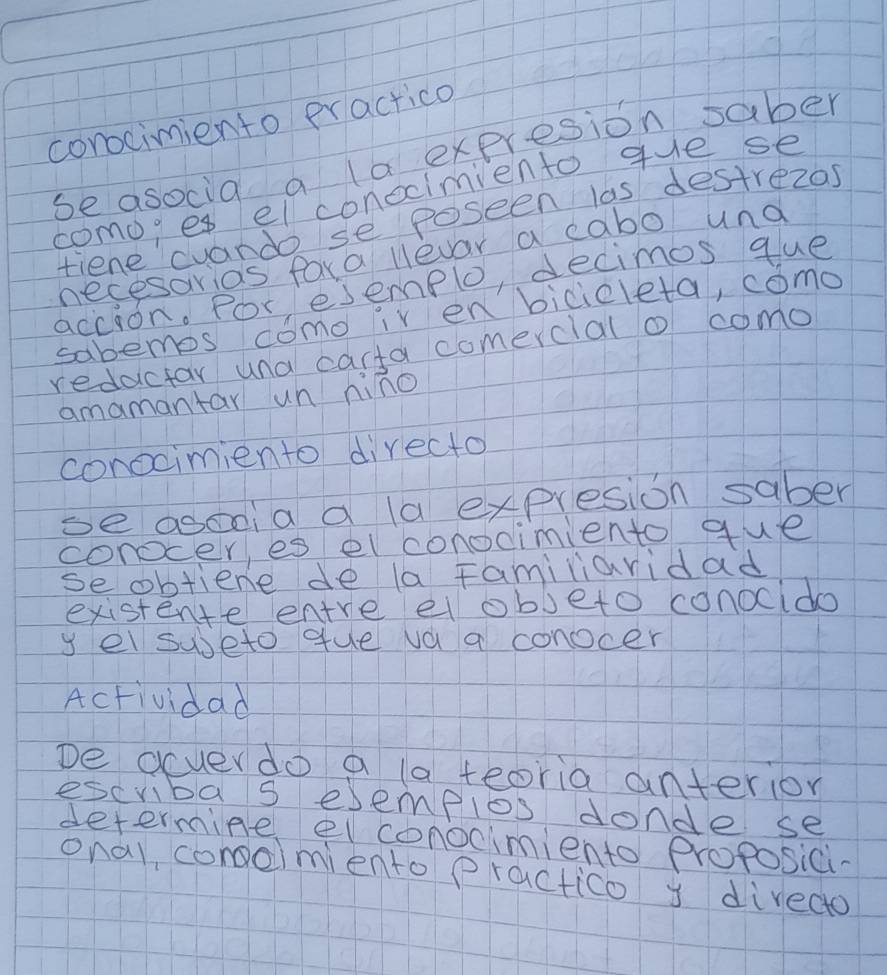 conocimiento practico
se asocia a la expresión saber
como; es el conocimiento que se
tiene cuando se poseen las destrezas
necesarias para llevar a cabo una
acción. Por ejemplo, decimos que
sabemos cómo ir en bicicleta, cómo
redactar una carta comercial o como
amamantar un niño
conocimiento directo
se asocia a la expresión saber
conocer, es el conocimiento que
se obtiene de la Familiaridad
existente entre el objeto conocido
y el sujeto que va a conocer
Actividad
De acuerdo a la teoria anterior
escriba 5 ejemplos donde se
determine el conocimiento proposici-
onal, conocimiento practico y directo